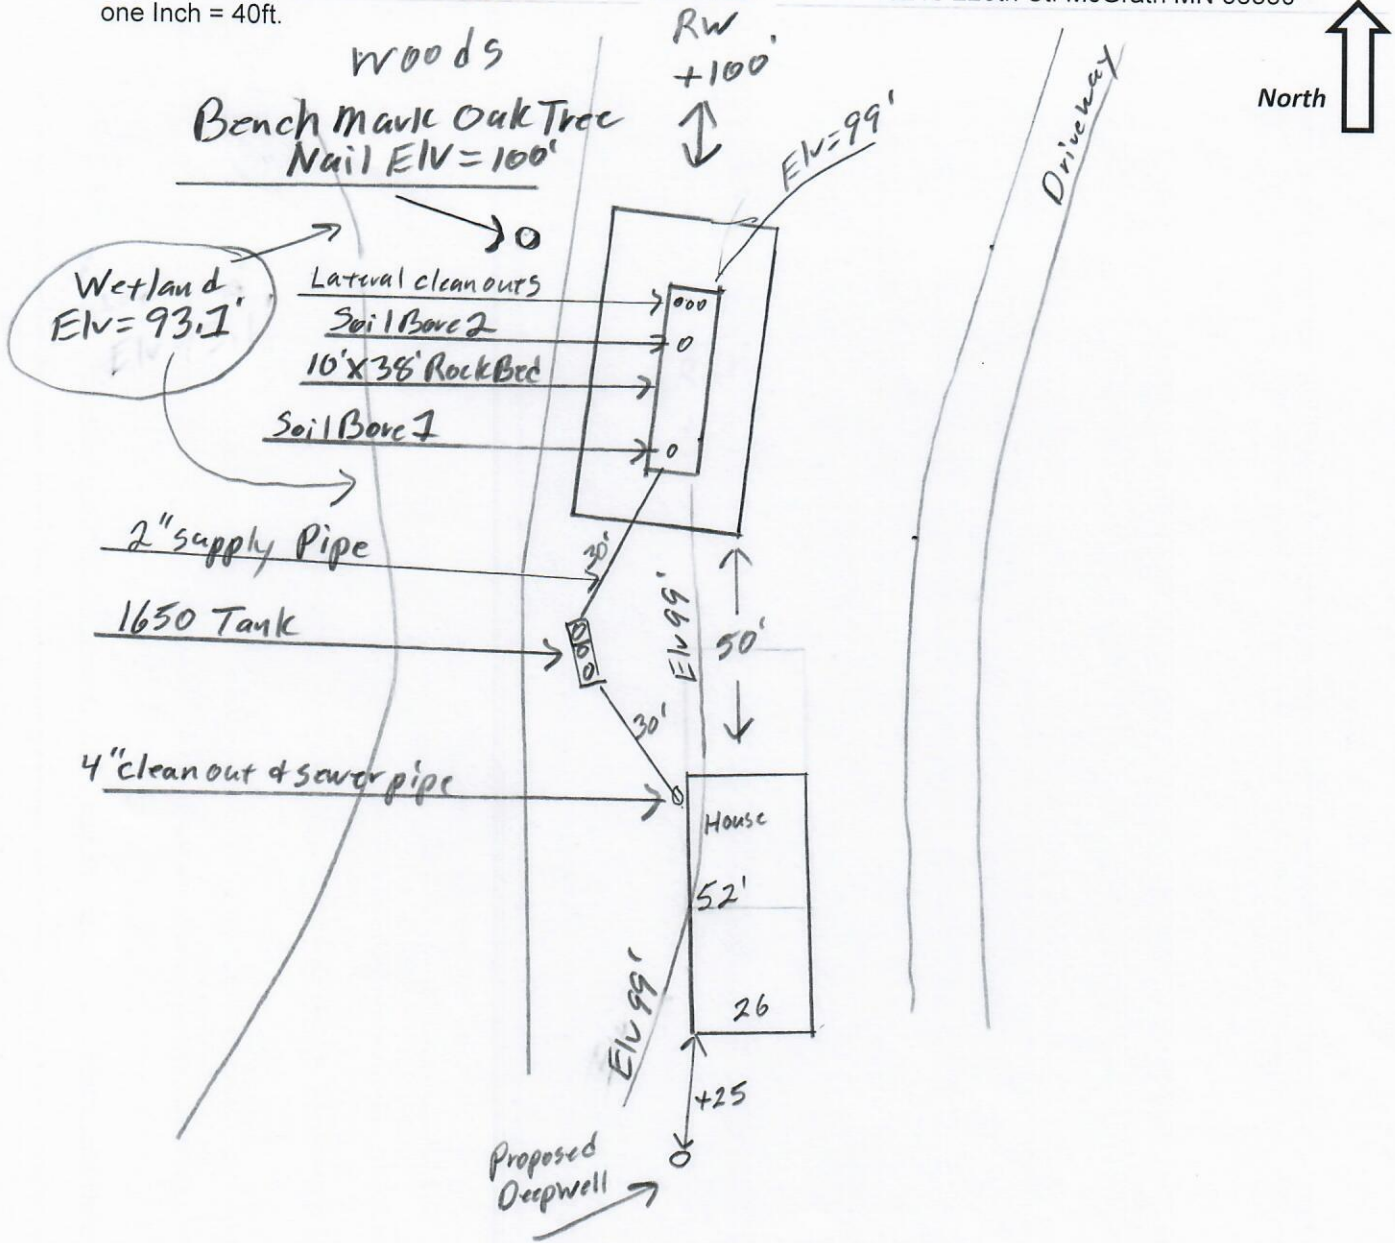 one Inch = 40ft.
North
woods
RW
+100'
Bench Mark Oak Tree
Nail Elv = 100'
Elv=99'
Driveway
Wetland
Elv= 93.1'
Lateral cleanouts
Soil Bore 2
10'x38' Rock Bed
Soil Bore 1
2" supply Pipe
30'
1650 Tank
Elv 99'
50'
30'
4" cleanout & sewer pipe
House
52'
26
Elv 99'
+25
Proposed
Deepwell